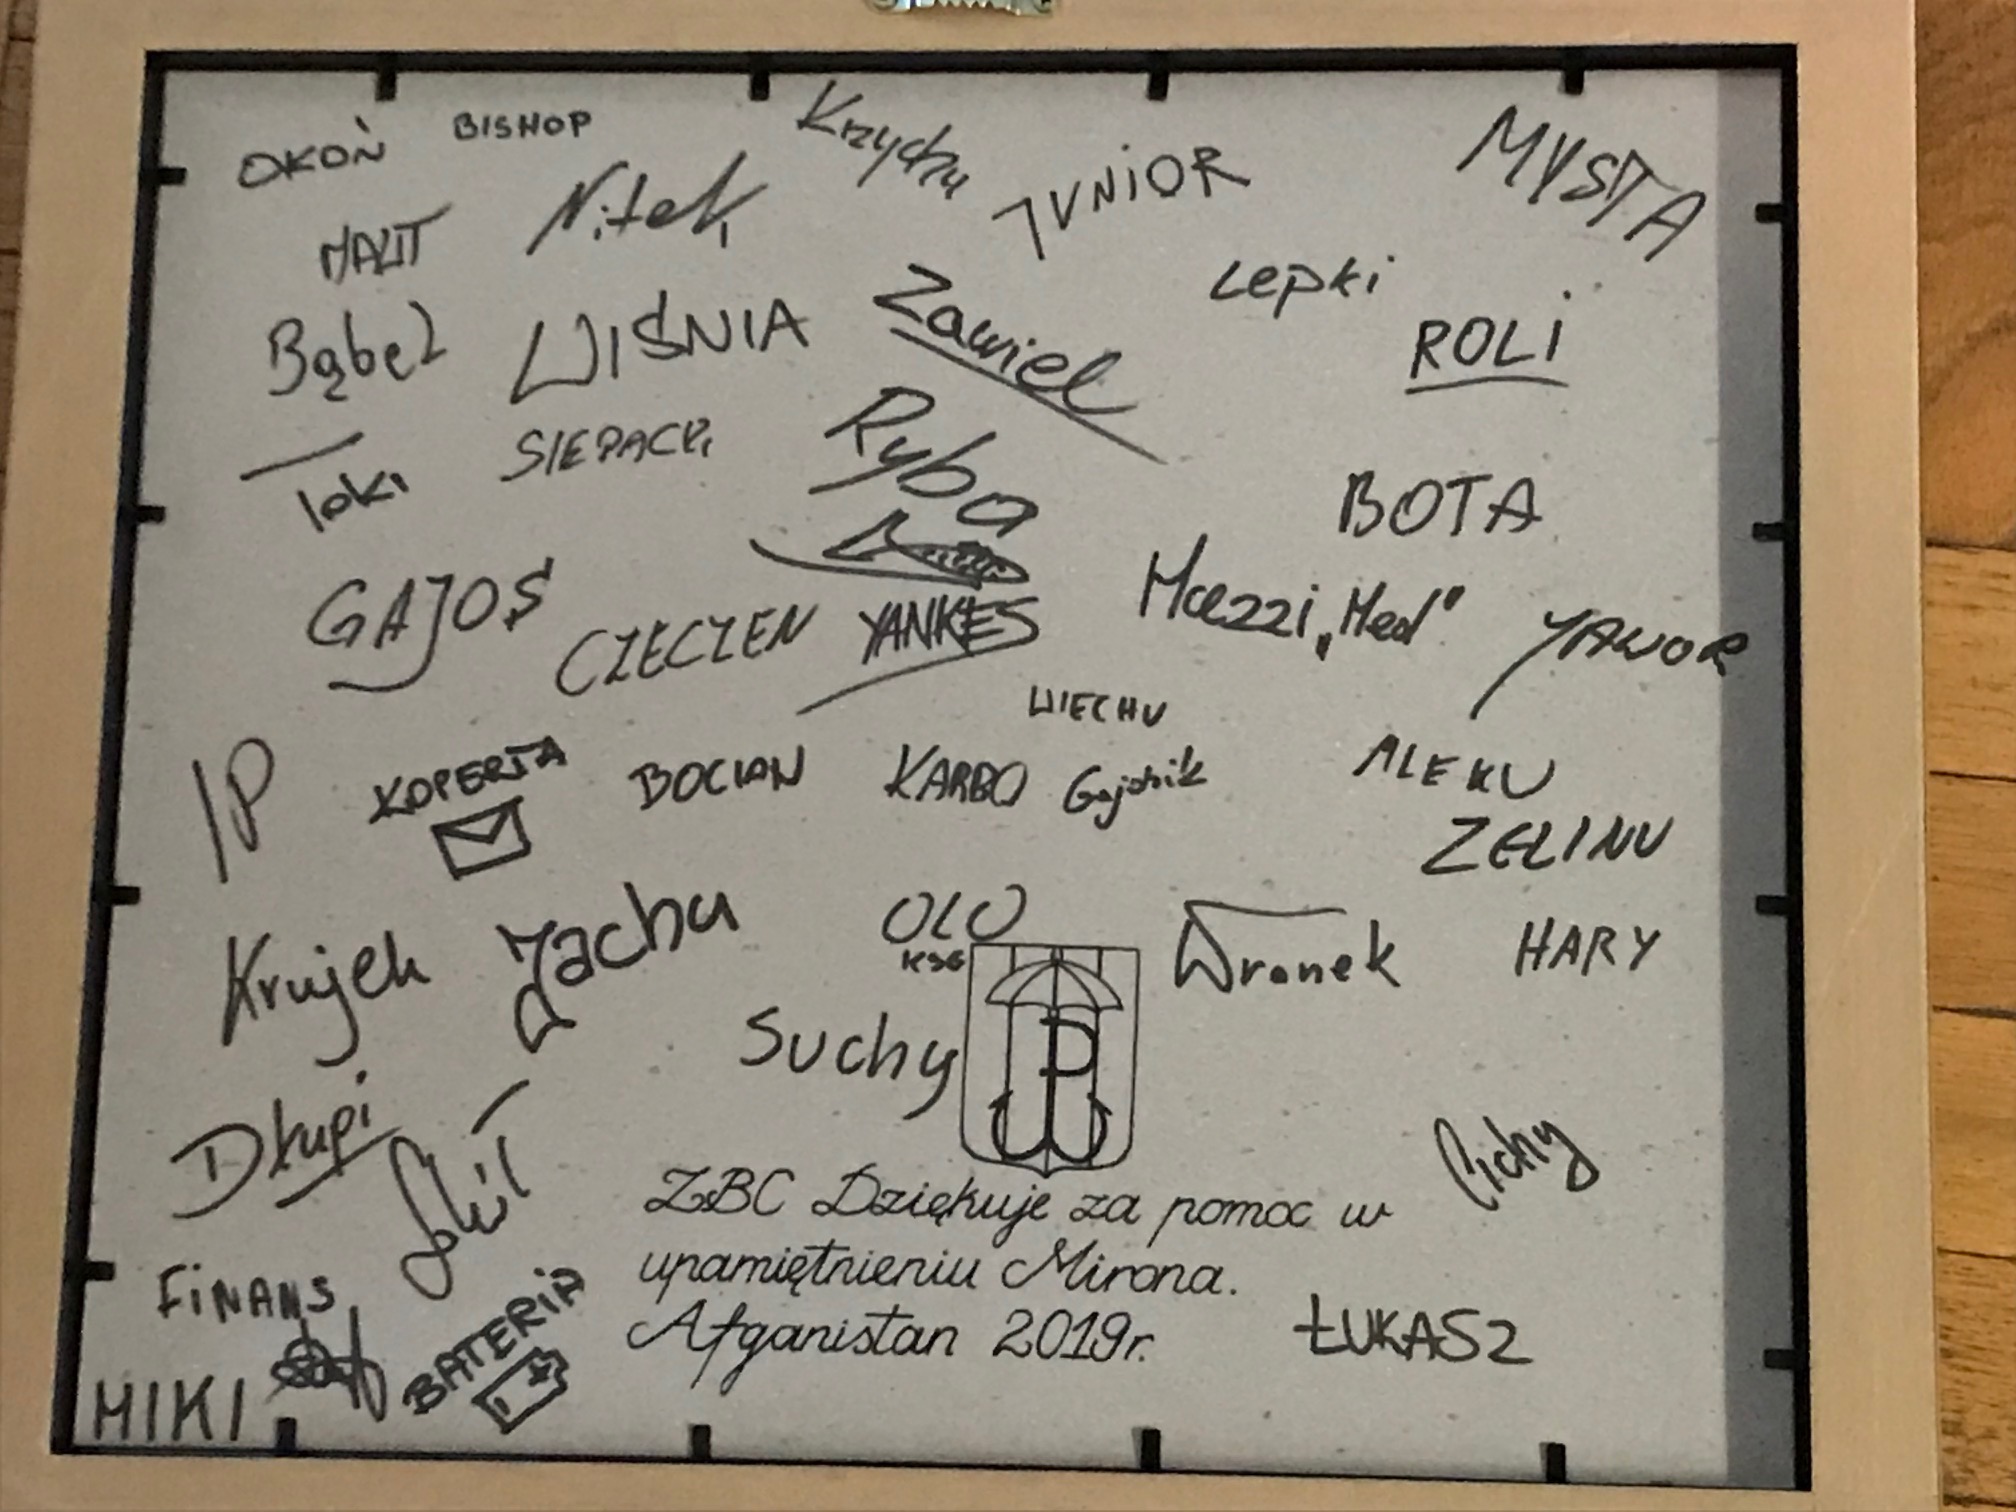 OKOŃ
BISHOP
Krzychu
JUNIOR
MYSTA
Nitek
Lepki
Bąbel
WIŚNIA
Zawiel
ROLI
loki
SIEPACZ
Ryba
BOTA
GAJOS
CZECZEN
YANKES
"Med"
YAWOR
WIECHU
IP
KOPERTA
BOCIAN
KARBO
ALEKU
ZELINU
Jachu
OLO
Wronek
HARY
Suchy
P
Dłupi
Cichy
ZBC Dziękuje za pomoc w
upamiętnieniu Mirona.
Afganistan 2019r.
FiNANS
BATERIA
ŁUKASZ
MIKI